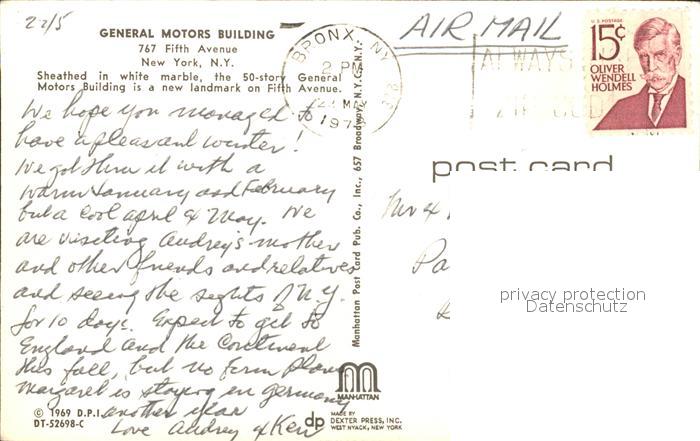 22/5
GENERAL MOTORS BUILDING
767 Fifth Avenue
New York, N.Y.
Sheathed in white marble, the 50-story General
Motors Building is a new landmark on Fifth Avenue.
We hope you managed to
have a pleasant winter!
We got thru it with a
warm January and February
but a cool april & May. We
are visiting Audrey's mother
and other friends and relatives
and seeing the sights of N.Y.
for 10 days. Expect to get to
England and the Continent
this fall, but no firm plans
Margaret is staying in Germany
another year
Love Audrey & Ken
© 1969 D.P.I.
DT-52698-C
Manhattan Post Card Pub. Co., Inc., 657 Broadway, N.Y.C., N.Y.
MANHATTAN
dp
MADE BY
DEXTER PRESS, INC.
WEST NYACK, NEW YORK
BRONX, NY
2 PM
22 MAY
197
AIR MAIL
ALWAYS
U.S. POSTAGE
15¢
OLIVER
WENDELL
HOLMES
post card
Mr &
Pa
privacy protection
Datenschutz